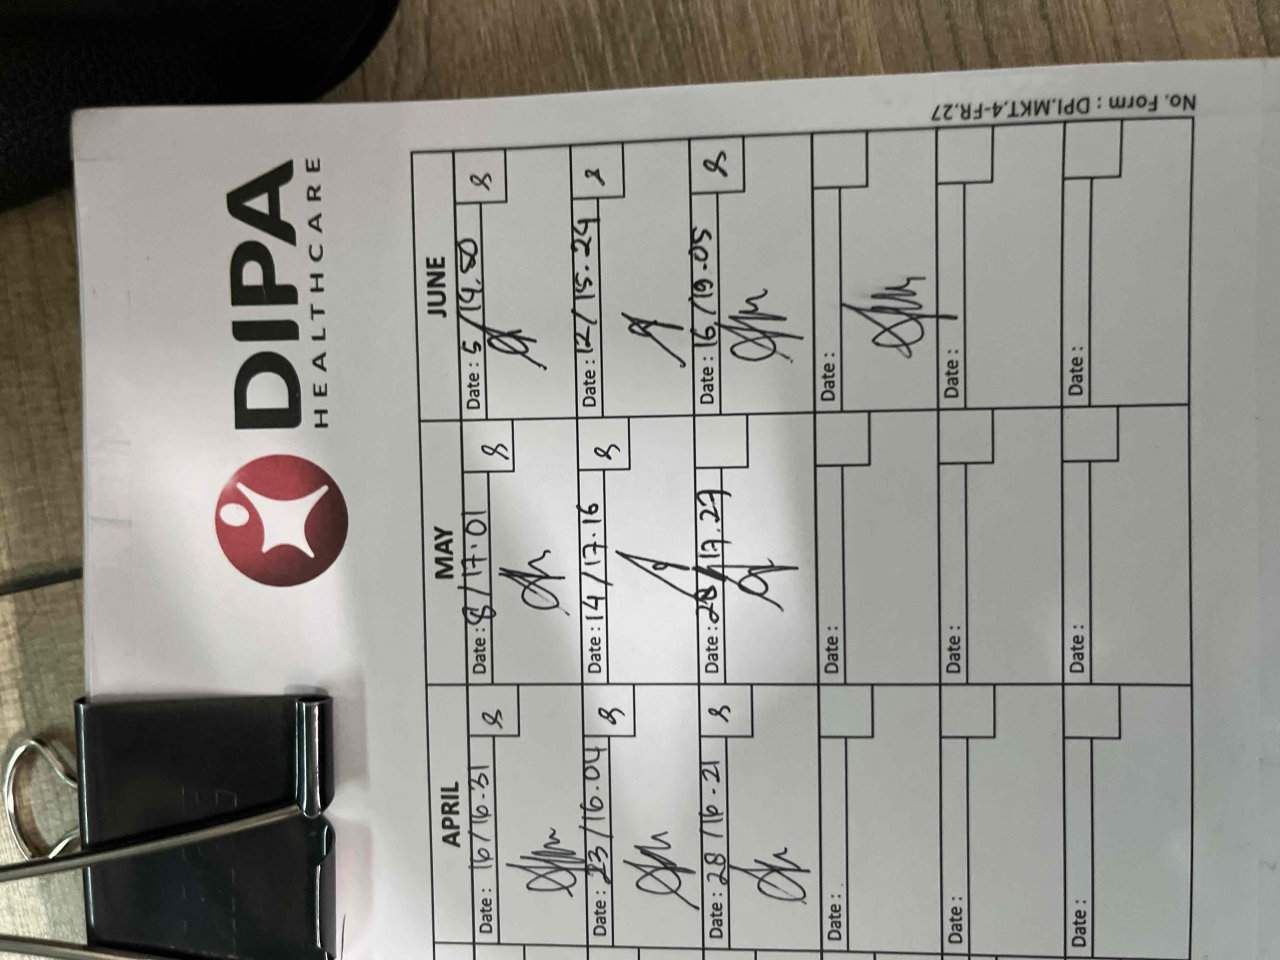 DIPA
HEALTHCARE
APRIL MAY JUNE
Date : 16/16.31 Date : 8/17.01 Date : 5/14.50
Date : 23/16.04 Date : 14/17.16 Date : 12/15.24
Date : 28/16-21 Date : 28/17.27 Date : 16/19.05
Date : Date : Date :
Date : Date : Date :
Date : Date : Date :
No. Form : DPI.MKT.4-FR.27